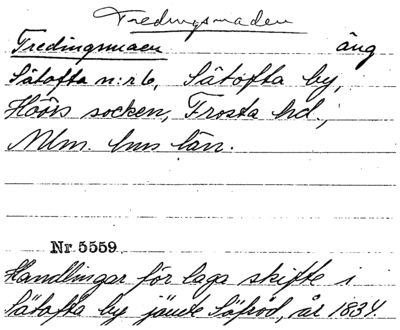 Fredingsmaden
Fredingsmaen äng
Sätofta n:r 6, Sätofta by,
Höörs socken, Frosta hd.,
Mlm. hus län.
Nr 5559
Handlingar för laga skifte i
Sätofta by jämte Söfröd, år 1834.